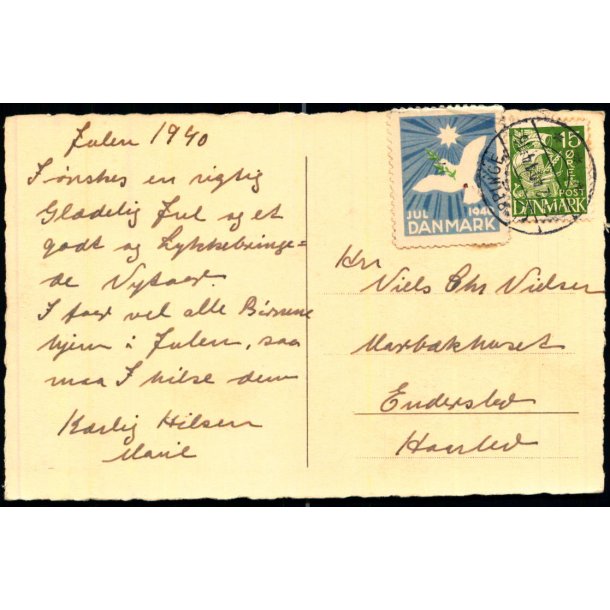 Julen 1940
I ønskes en rigtig
Glædelig Jul og et
godt og Lykkebringen=
de Nytaar.
I faar vel alle Børnene
hjem i Julen, saa
maa I hilse dem
Kærlig Hilsen
Marie
JUL 1940
DANMARK
15
ØRE
POST
DANMARK
Hr.
Niels Chr Nielsen
Marbækhuset
Enderslev
Haarlev